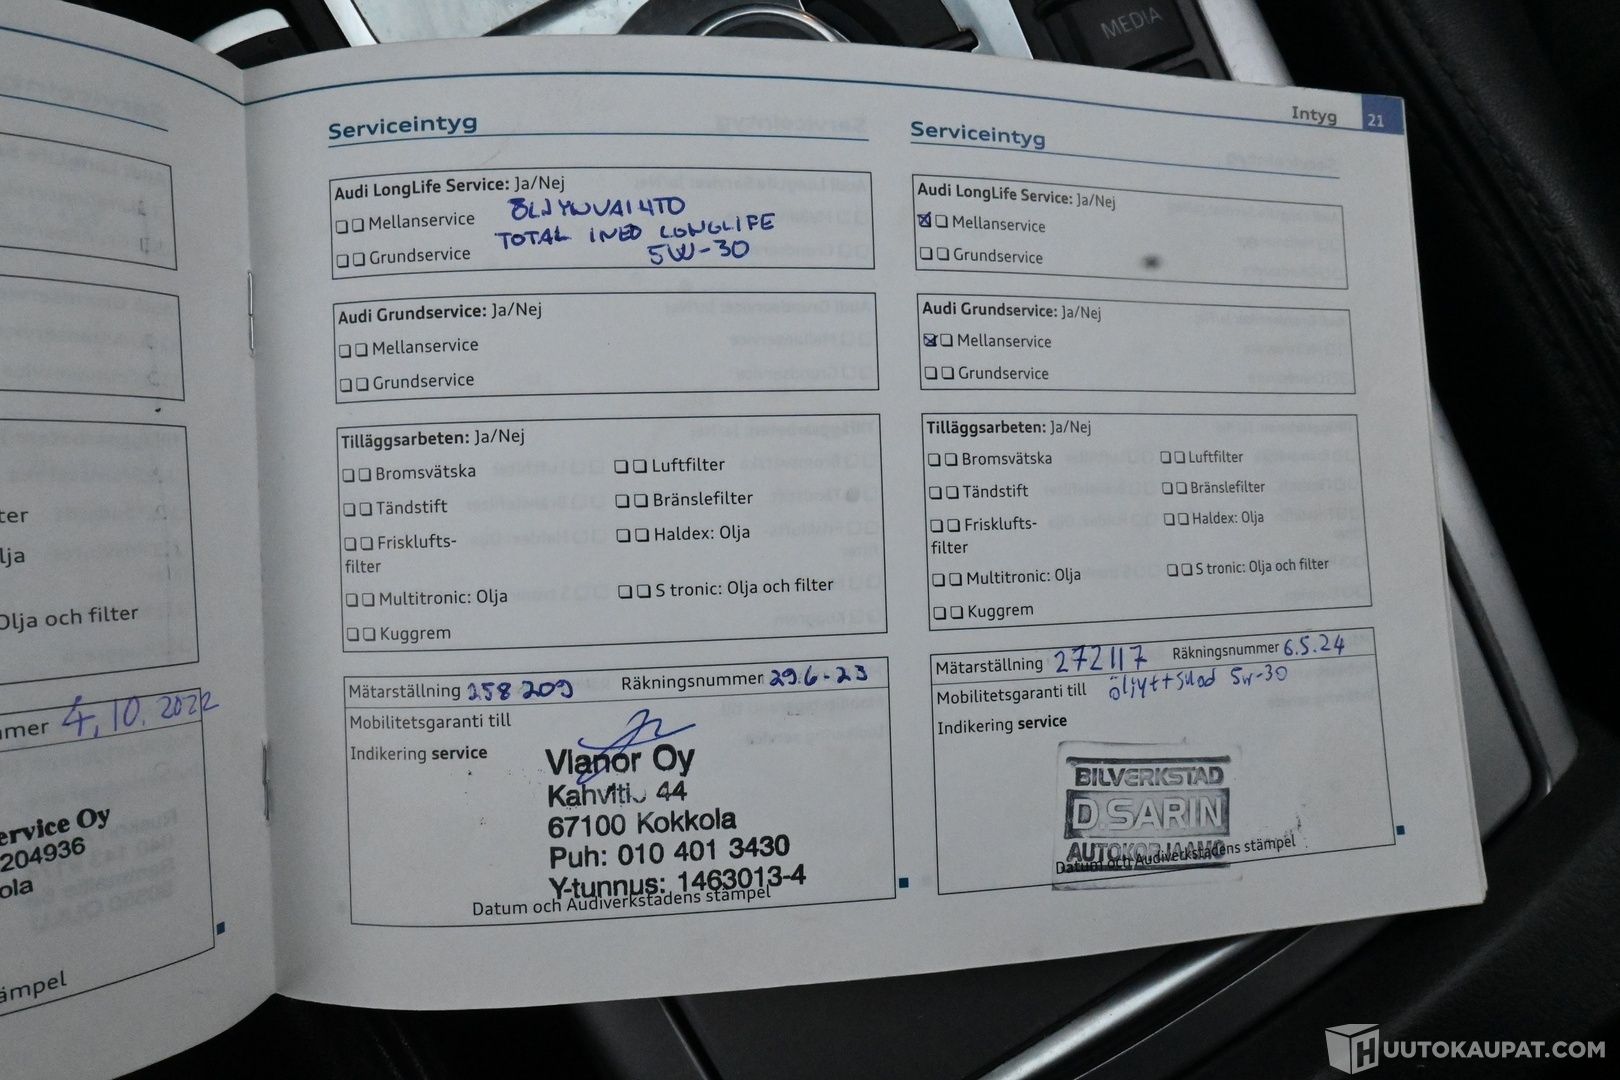 MEDIA
Intyg 21
ter
lja
Olja och filter
mer 4,10.2022
ervice Oy
204936
ola
ämpel
Serviceintyg
Audi LongLife Service: Ja/Nej
Mellanservice ÖLJYNVAIHTO
TOTAL INEO LONGLIFE
Grundservice 5W-30
Audi Grundservice: Ja/Nej
Mellanservice
Grundservice
Tilläggsarbeten: Ja/Nej
Bromsvätska Luftfilter
Tändstift Bränslefilter
Frisklufts- Haldex: Olja
filter
Multitronic: Olja S tronic: Olja och filter
Kuggrem
Mätarställning 258 209 Räkningsnummer 29.6-23
Mobilitetsgaranti till
Indikering service
Vianor Oy
44
67100 Kokkola
Puh: 010 401 3430
Y-tunnus: 1463013-4
Datum och Audiverkstadens stämpel
Serviceintyg
Audi LongLife Service: Ja/Nej
Mellanservice
Grundservice
Audi Grundservice: Ja/Nej
Mellanservice
Grundservice
Tilläggsarbeten: Ja/Nej
Bromsvätska Luftfilter
Tändstift Bränslefilter
Frisklufts- Haldex: Olja
filter
Multitronic: Olja S tronic: Olja och filter
Kuggrem
Mätarställning 272117 Räkningsnummer 6.5.24
Mobilitetsgaranti till 5W-30
Indikering service
BILVERKSTAD
D.SARIN
AUTOKORJAAMO
Datum och Audiverkstadens stämpel
HUUTOKAUPAT.COM